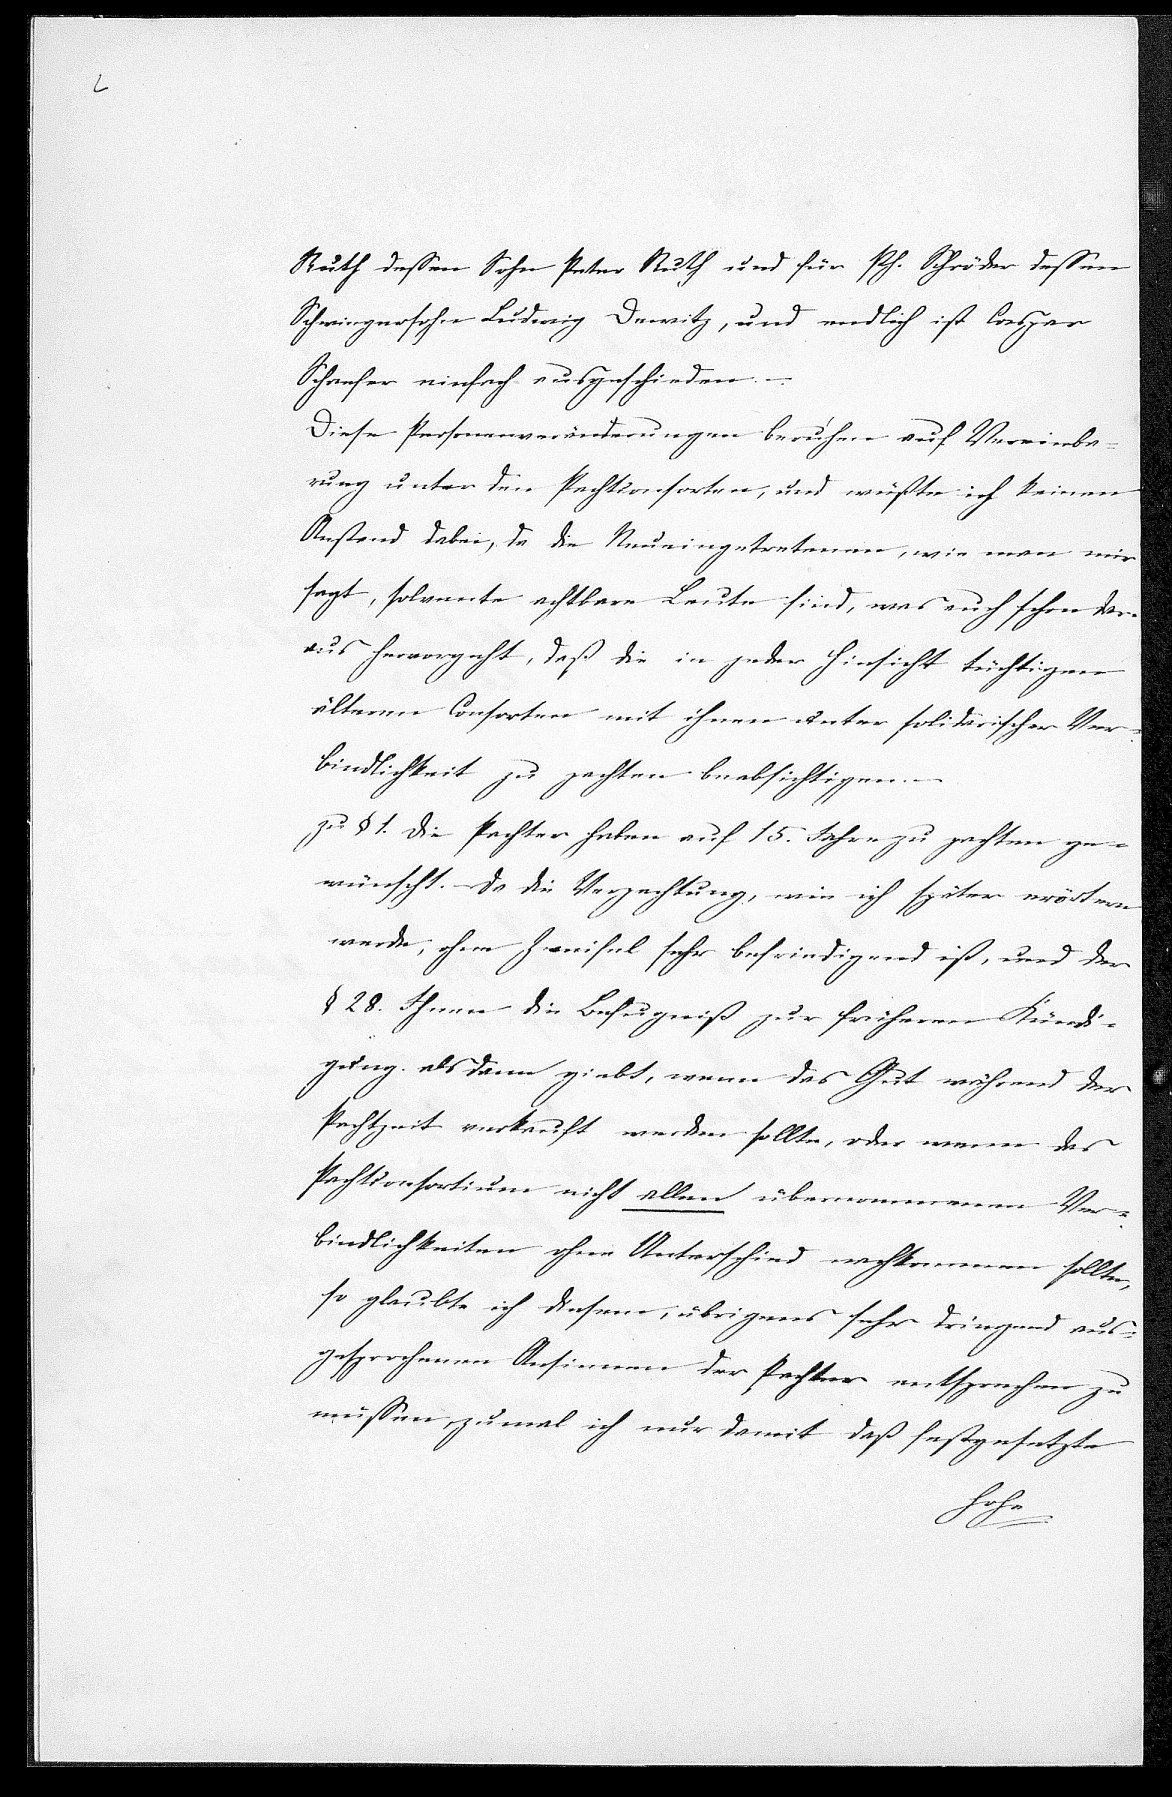 2
Ruth dessen Sohn Peter Ruth und für Ph. Schröder dessen
Schwiegersohn Ludwig Dewitz, und endlich ist Caspar
Schaefer einfach ausgeschieden. -
Diese Personenveränderungen beruhen auf Vereinba-
rung unter den Pachtconsorten, und wüßte ich keinen
Anstand dabei, da die Neueingetretenen, wie man mir
sagt, solvente achtbare Leute sind, was auch schon dar-
aus hervorgeht, daß die in jeder Hinsicht tüchtigen
älteren Consorten mit ihnen unter solidarischer Ver-
bindlichkeit zu pachten beabsichtigen. -
zu § 1. Die Pachter haben auf 15. Jahre zu pachten ge-
wünscht. - Da die Verpachtung, wie ich später erörtern
werde, ohne Zweifel sehr befriedigend ist, und der
§ 28. Ihnen die Befugniß zur früheren Kündi-
gung alsdann giebt, wenn das Gut während der
Pachtzeit verkauft werden sollte, oder wenn das
Pachtconsortium nicht allen übernommenen Ver-
bindlichkeiten ohne Unterschied nachkommen sollte,
so glaubte ich diesem, übrigens sehr dringend aus-
gesprochenen Ansinnen der Pachter entsprechen zu
müssen, zumal ich nur damit daß festgesetzte
hohe